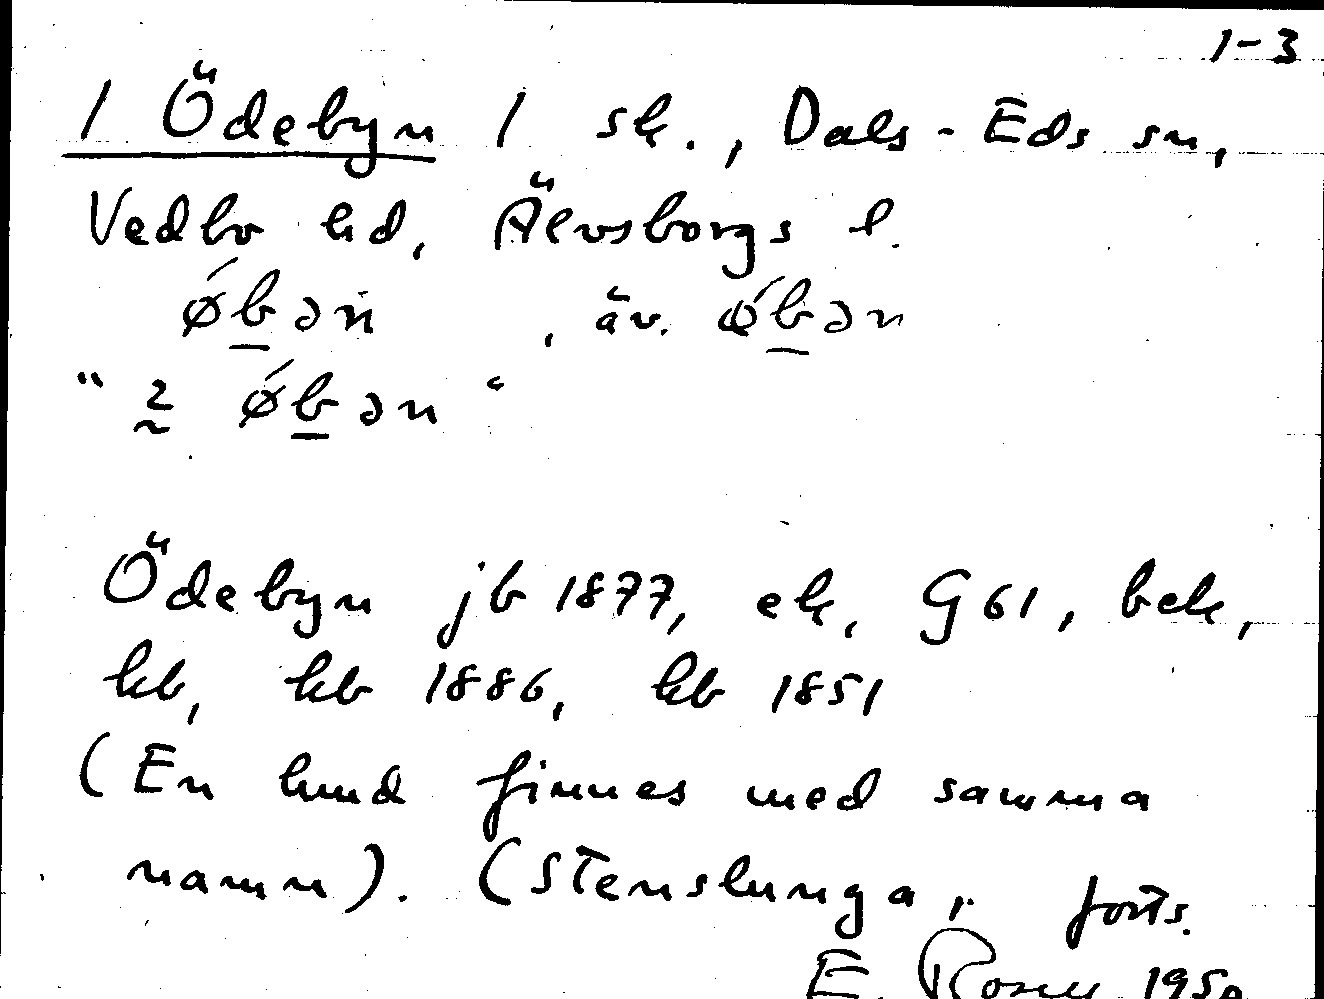 1-3
/ Ödebyn / sk., Dals-Eds sn,
Vedbo hd, Älvsborgs l.
ǿb̲ən , äv. ǿb̲ən
"ǿb̲ən"
Ödebyn jb 1877, ek, G61, bek,
kb, kb 1886, kb 1851
(En lund finnes med samma
namn). (Stenslunga, forts.
E. 1950